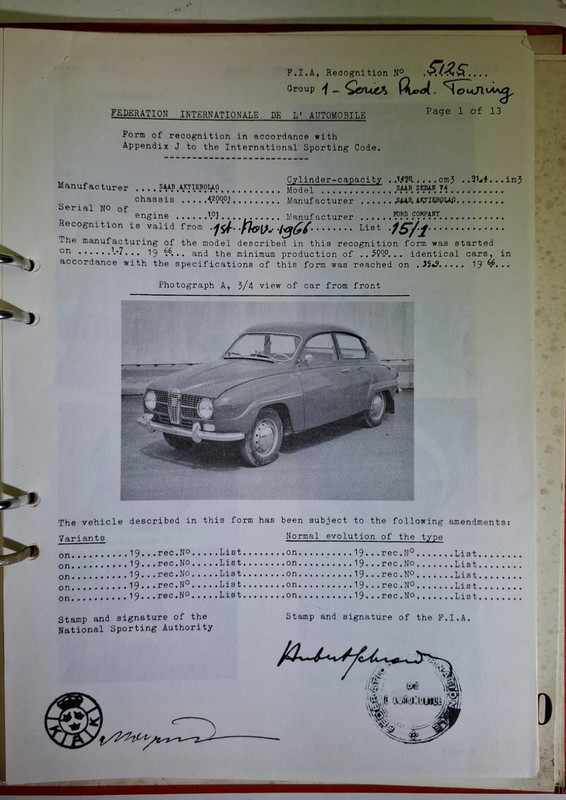 F.I.A, Recognition Nº 5125....
Group 1 - Series Prod. Touring
FEDERATION INTERNATIONALE DE L' AUTOMOBILE
Page 1 of 13
Form of recognition in accordance with
Appendix J to the International Sporting Code.
Cylinder-capacity ..1498....cm3 ..91.4...in3
Manufacturer ....SAAB AKTIEBOLAG............ Model ............SAAB SEDAN V4............
Serial Nº of chassis ....420001............ Manufacturer ....SAAB AKTIEBOLAG............
engine ....101............ Manufacturer ....FORD COMPANY............
Recognition is valid from 1st Nov. 1966........ List .15/1............
The manufacturing of the model described in this recognition form was started
on ......1.7... 19 66... and the minimum production of ..5000... identical cars, in
accordance with the specifications of this form was reached on ......... 19 66...
Photograph A, 3/4 view of car from front
The vehicle described in this form has been subject to the following amendments:
Variants
Normal evolution of the type
on..........19...rec.Nº.....List........on..........19...rec.Nº......List.......
on..........19...rec.Nº.....List........on..........19...rec.Nº......List.......
on..........19...rec.Nº.....List........on..........19...rec.Nº......List.......
on..........19...rec.Nº.....List........on..........19...rec.Nº......List.......
on..........19...rec.Nº.....List........on..........19...rec.Nº......List.......
Stamp and signature of the
National Sporting Authority
Stamp and signature of the F.I.A.
DE
L'AUTOMOBILE
KAK